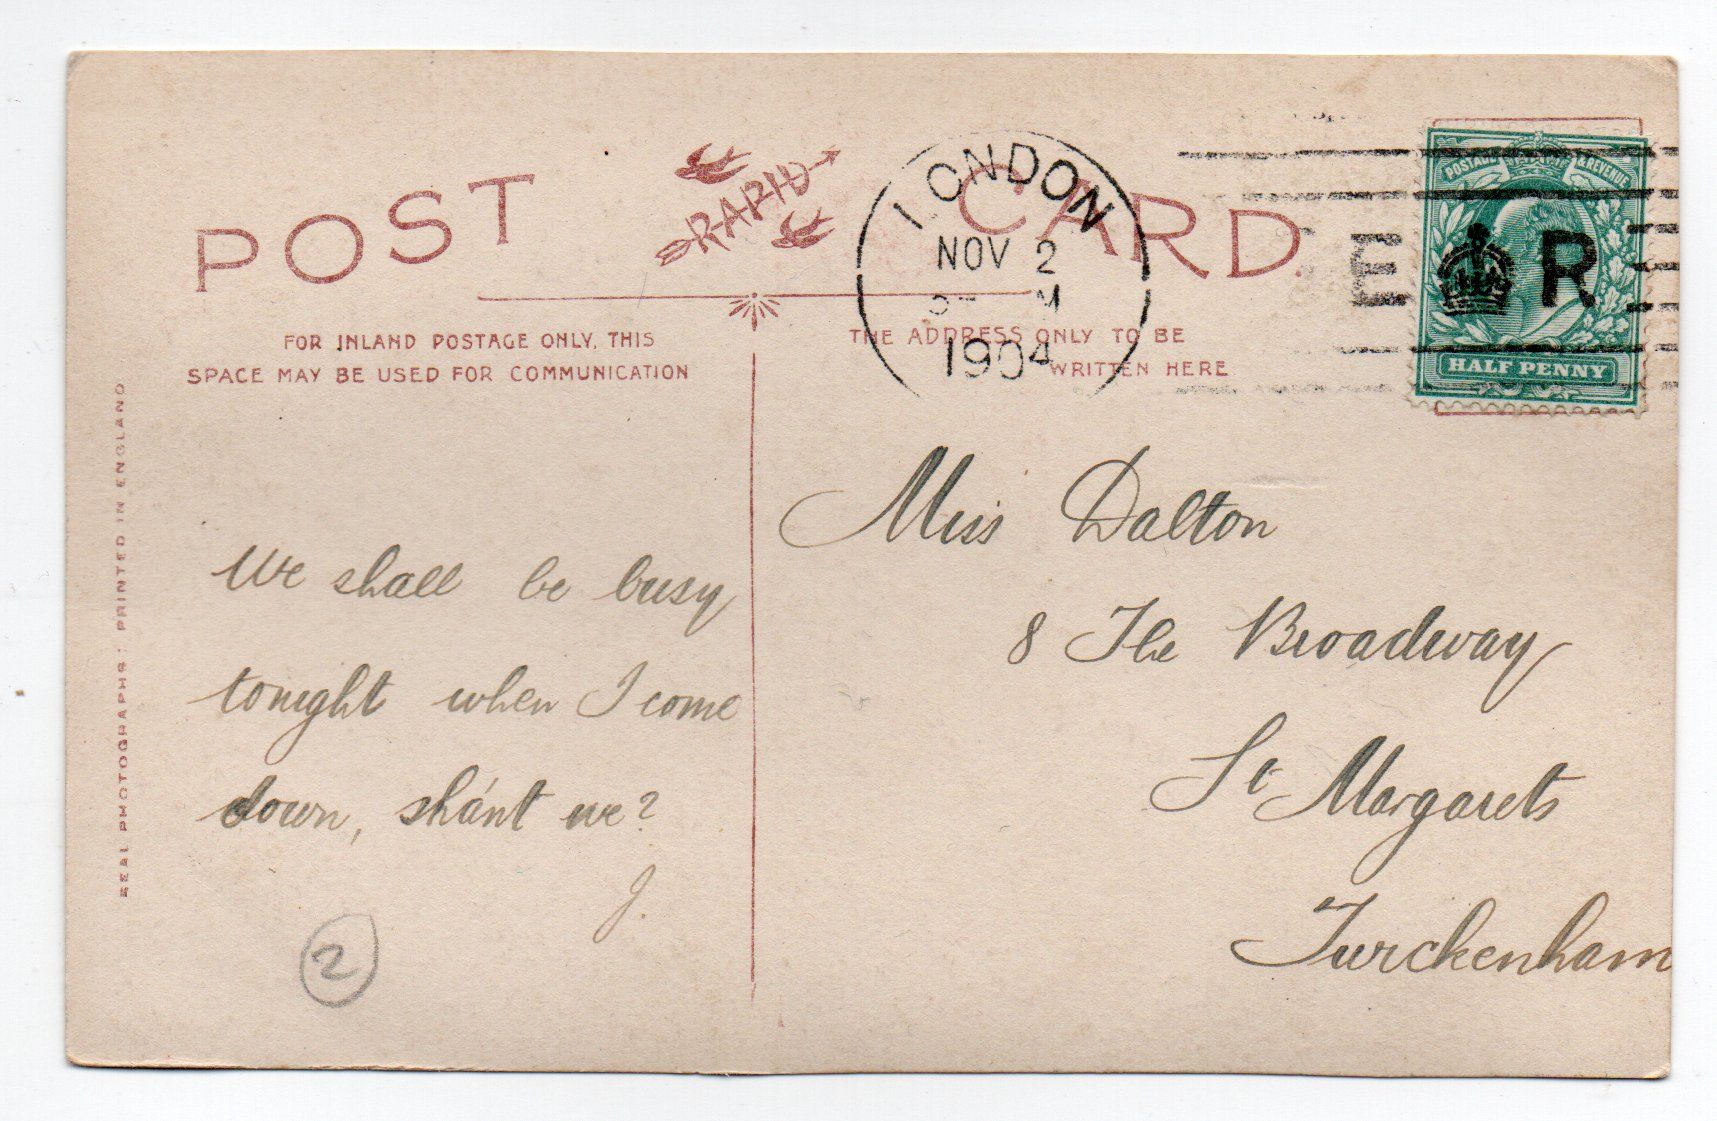 POST CARD.
RAPID
LONDON
NOV 2
1904
E R
POSTAGE & REVENUE
HALF PENNY
FOR INLAND POSTAGE ONLY, THIS
SPACE MAY BE USED FOR COMMUNICATION
THE ADDRESS ONLY TO BE
WRITTEN HERE
REAL PHOTOGRAPHS: PRINTED IN ENGLAND
We shall be busy
tonight when I come
down, shán't we?
J.
2
Miss Dalton
8 The Broadway
St Margarets
Twickenham